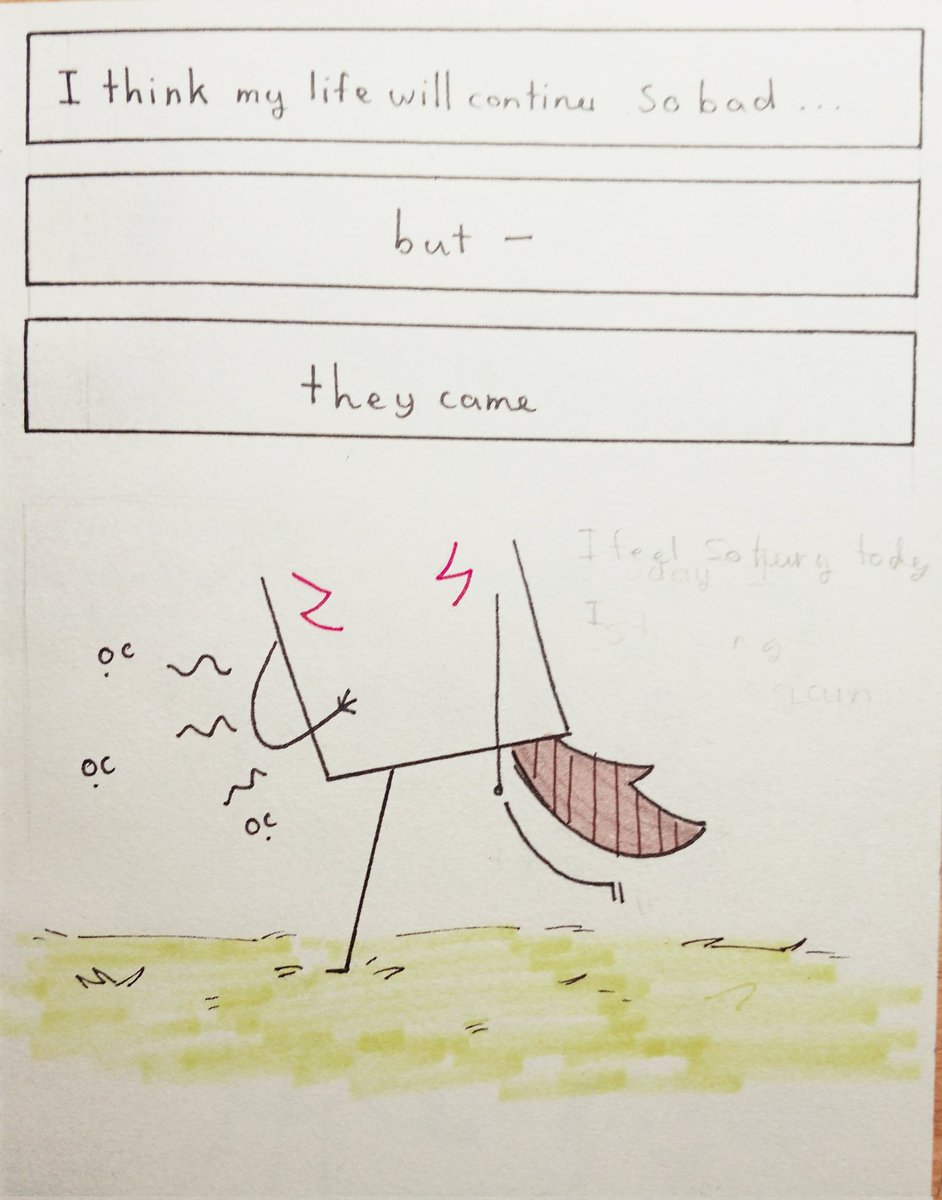 I think my life will continu so bad ...
but –
they came
I feel so
day
I